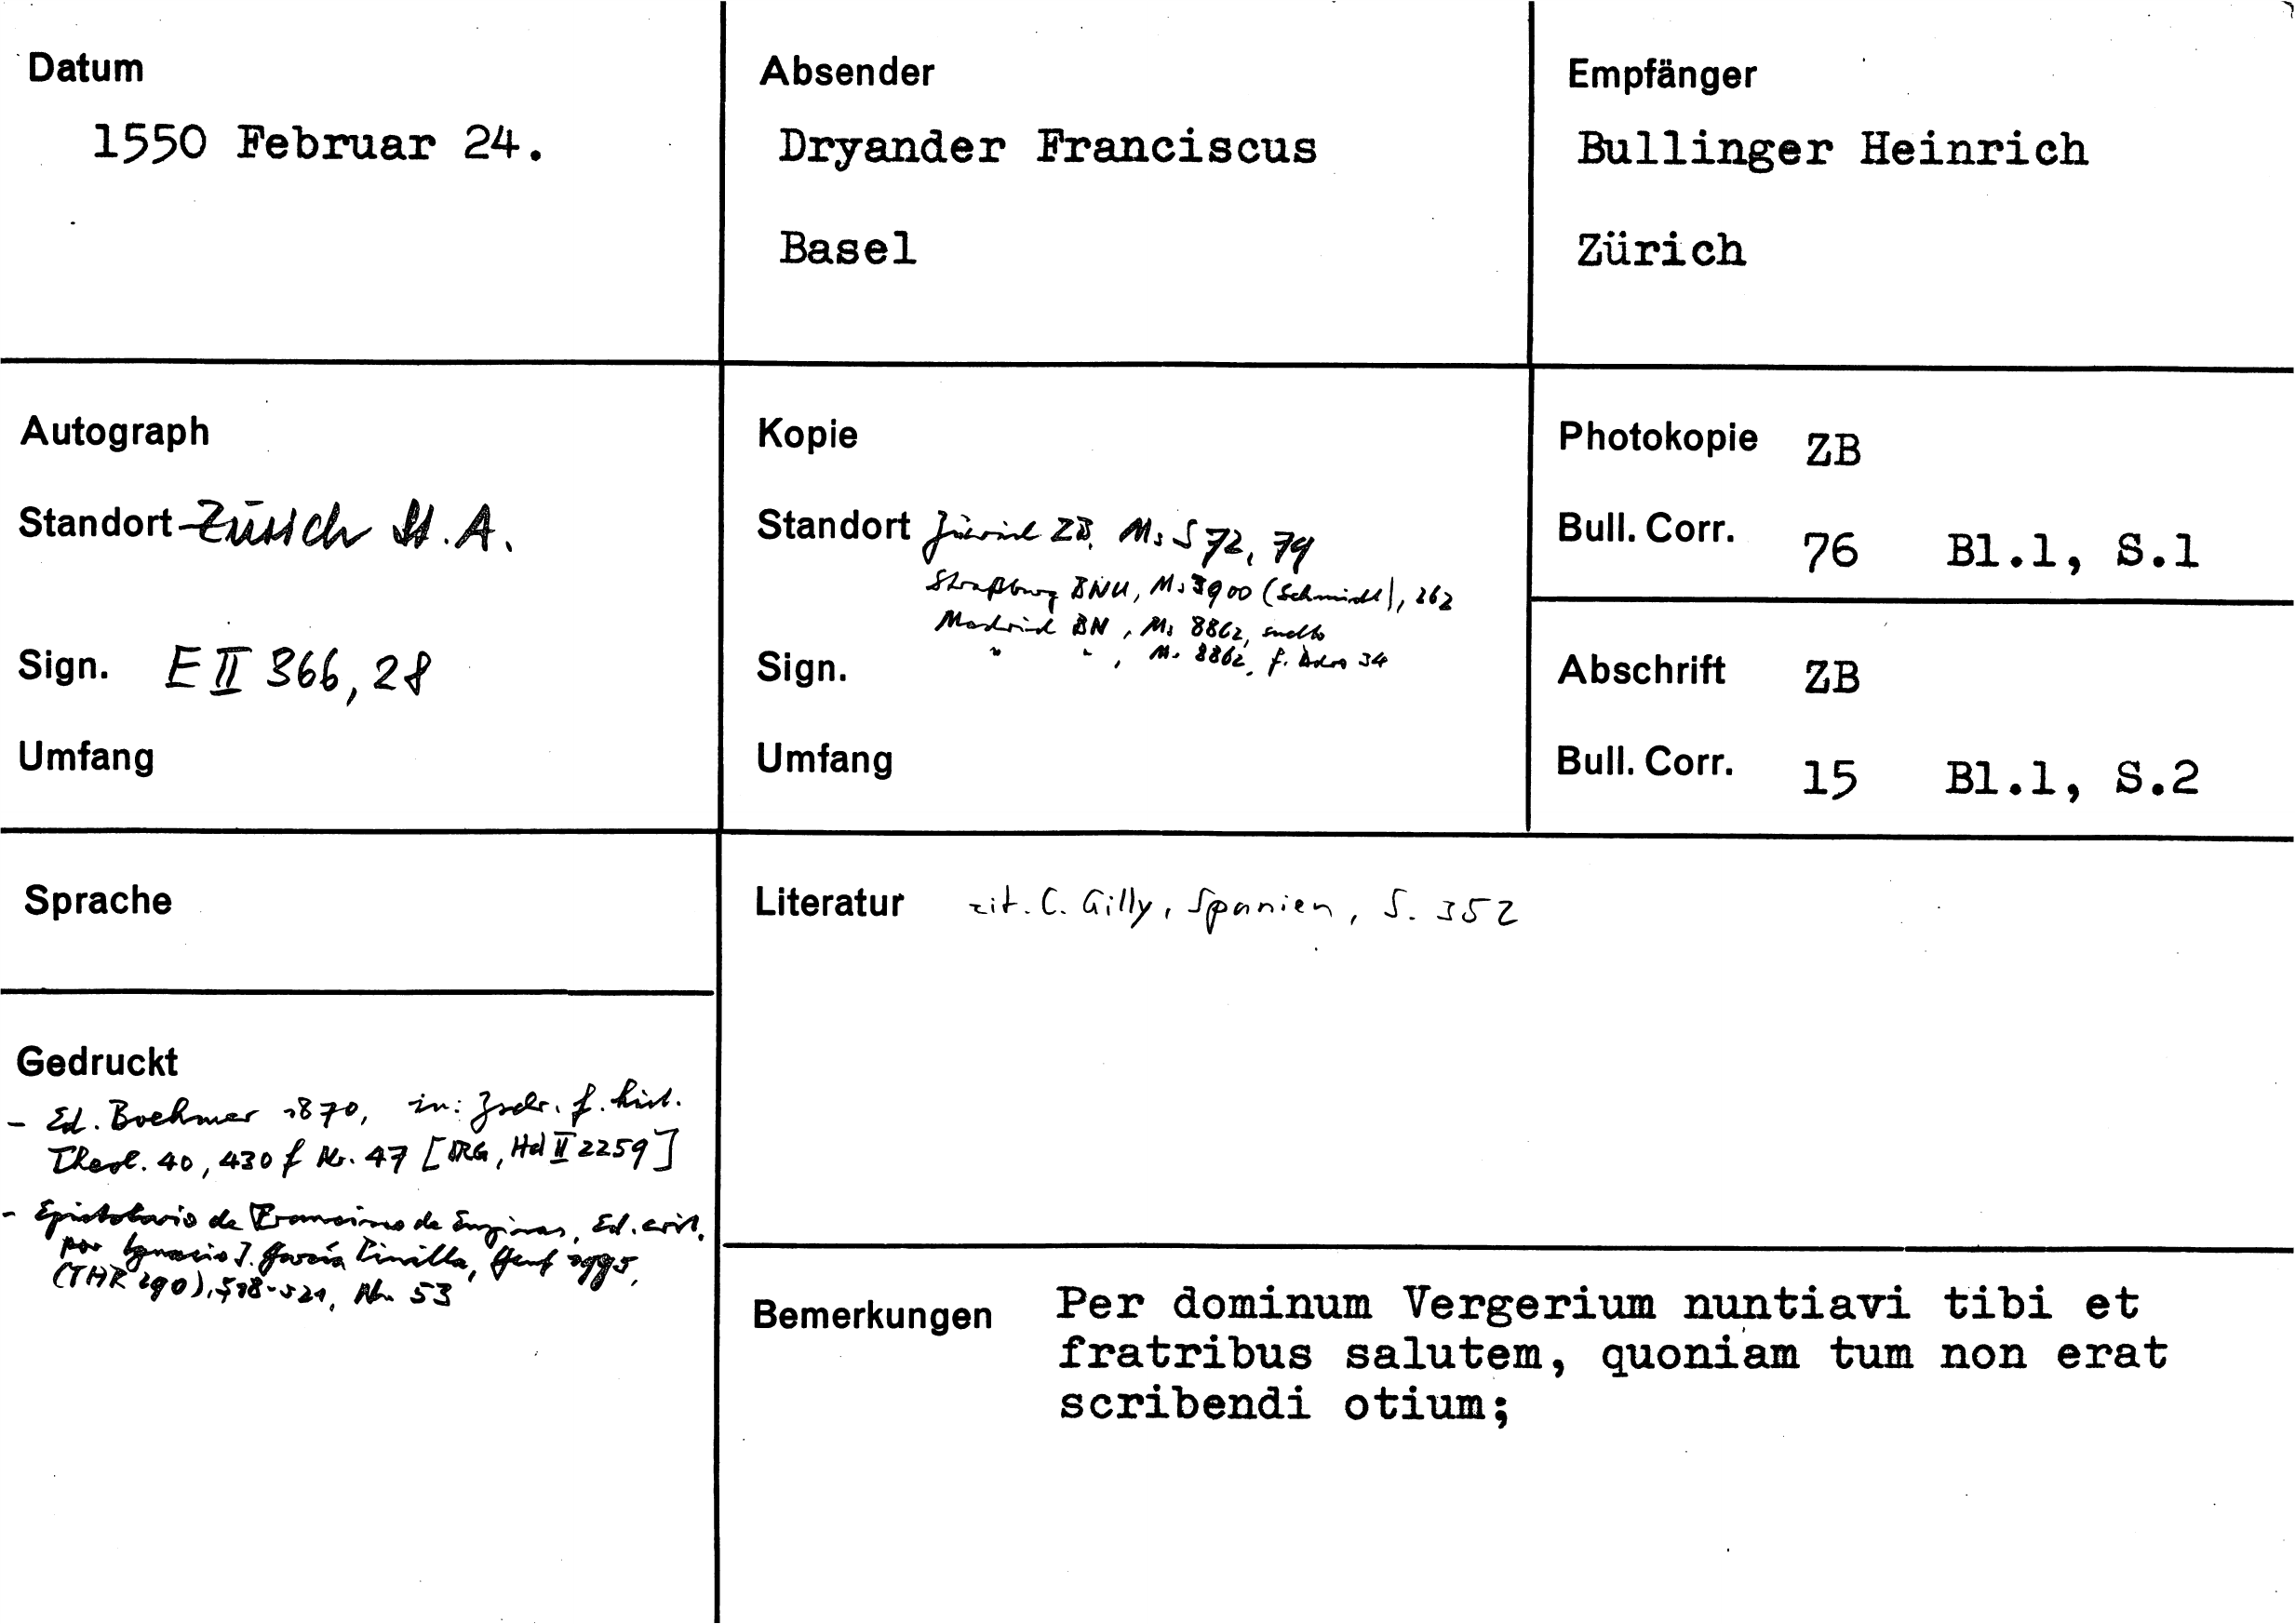 Datum
1550 Februar 24.
Absender
Dryander Franciscus
Basel
Empfänger
Bullinger Heinrich
Zürich
Autograph
Standort Zürich St.A.
Sign. E II 366, 28
Umfang
Kopie
Standort Zürich ZB, Ms S 72, 79
Straßburg BNU, Ms 3900 (Schmidt), 262
Madrid BN, Ms 8862, suelto
" ", Ms 8862, f. 34
Sign.
Umfang
Photokopie ZB
Bull. Corr. 76 Bl.1, S.1
Abschrift ZB
Bull. Corr. 15 Bl.1, S.2
Sprache
Literatur zit. C. Gilly, Spanien, S. 352
Gedruckt
- Ed. Boehmer 1870, in: Zschr. f. hist.
Theol. 40, 430 f Nr. 47 [IRG, Hd II 2259]
- Epistolario de Francisco de Enzinas, Ed. crit.
por Ignacio J. García Pinilla, Genf 1995,
(THR 290), 518-521, Nr. 53
Bemerkungen Per dominum Vergerium nuntiavi tibi et
fratribus salutem, quoniam tum non erat
scribendi otium;